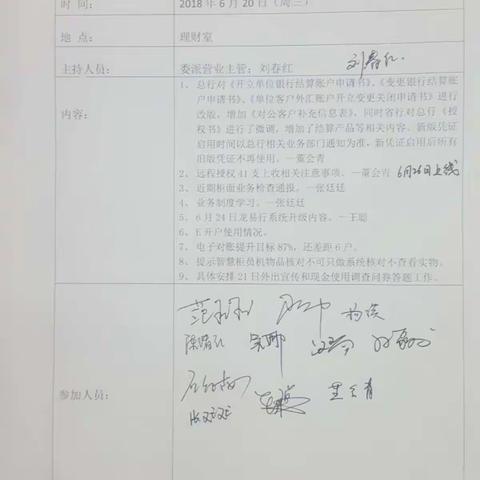 时 间： 2018 年 6 月 20 日（周三）
地 点： 理财室
主持人员： 委派营业主管：刘春红 刘春红
内容：
1、总行对《开立单位银行结算账户申请书》、《变更银行结算账
户申请书》、《单位客户外汇账户开立变更关闭申请书》进行
改版，增加《对公客户补充信息表》，同时省行对总行《授
权书》进行了微调，增加了结算产品等相关内容。新版凭证
启用时间以总行相关业务部门通知为准，新凭证启用后所有
旧版凭证不再使用。—董会青
2、远程授权 41 支上收相关注意事项。—董会青 6月26日上线
3、近期柜面业务检查通报。—张廷廷
4、业务制度学习。—张廷廷
5、6 月 24 日龙易行系统升级内容。—王聪
6、E 开户使用情况。
7、电子对账提升目标 87%，还差距 6 户。
8、提示智慧柜员机物品核对不可只做系统核对不查看实物。
9、具体安排 21 日外出宣传和现金使用调查问券答题工作。
参加人员：